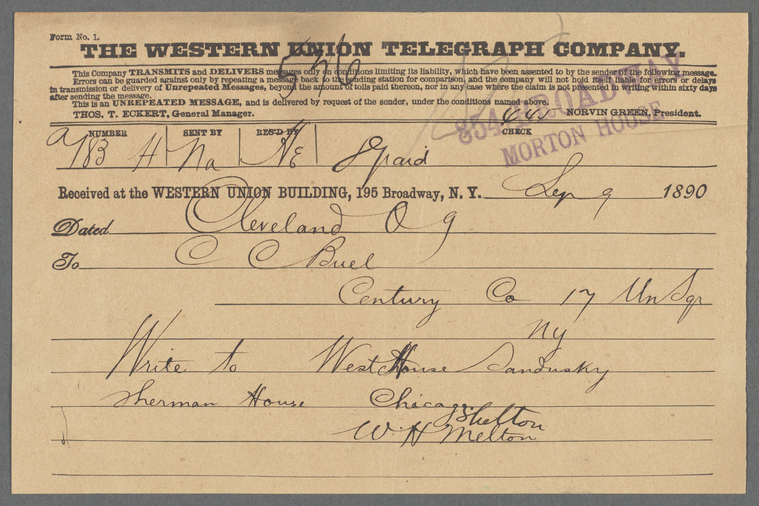 Form No. 1.
THE WESTERN UNION TELEGRAPH COMPANY.
This Company TRANSMITS and DELIVERS messages only on conditions limiting its liability, which have been assented to by the sender of the following message.
Errors can be guarded against only by repeating a message back to the sending station for comparison, and the company will not hold itself liable for errors or delays
in transmission or delivery of Unrepeated Messages, beyond the amount of tolls paid thereon, nor in any case where the claim is not presented in writing within sixty days
after sending the message.
This is an UNREPEATED MESSAGE, and is delivered by request of the sender, under the conditions named above.
THOS. T. ECKERT, General Manager. NORVIN GREEN, President.
854 BROADWAY
MORTON HOUSE
NUMBER SENT BY REC'D BY CHECK
183 H Na 8 paid
Received at the WESTERN UNION BUILDING, 195 Broadway, N. Y. Sep 9 1890
Dated Cleveland O 9
To C C Buel
Century Co 17 Un Sqr
Ny
Write to West House Sandusky
Sherman House Chicago
Shelton
W. H Melton